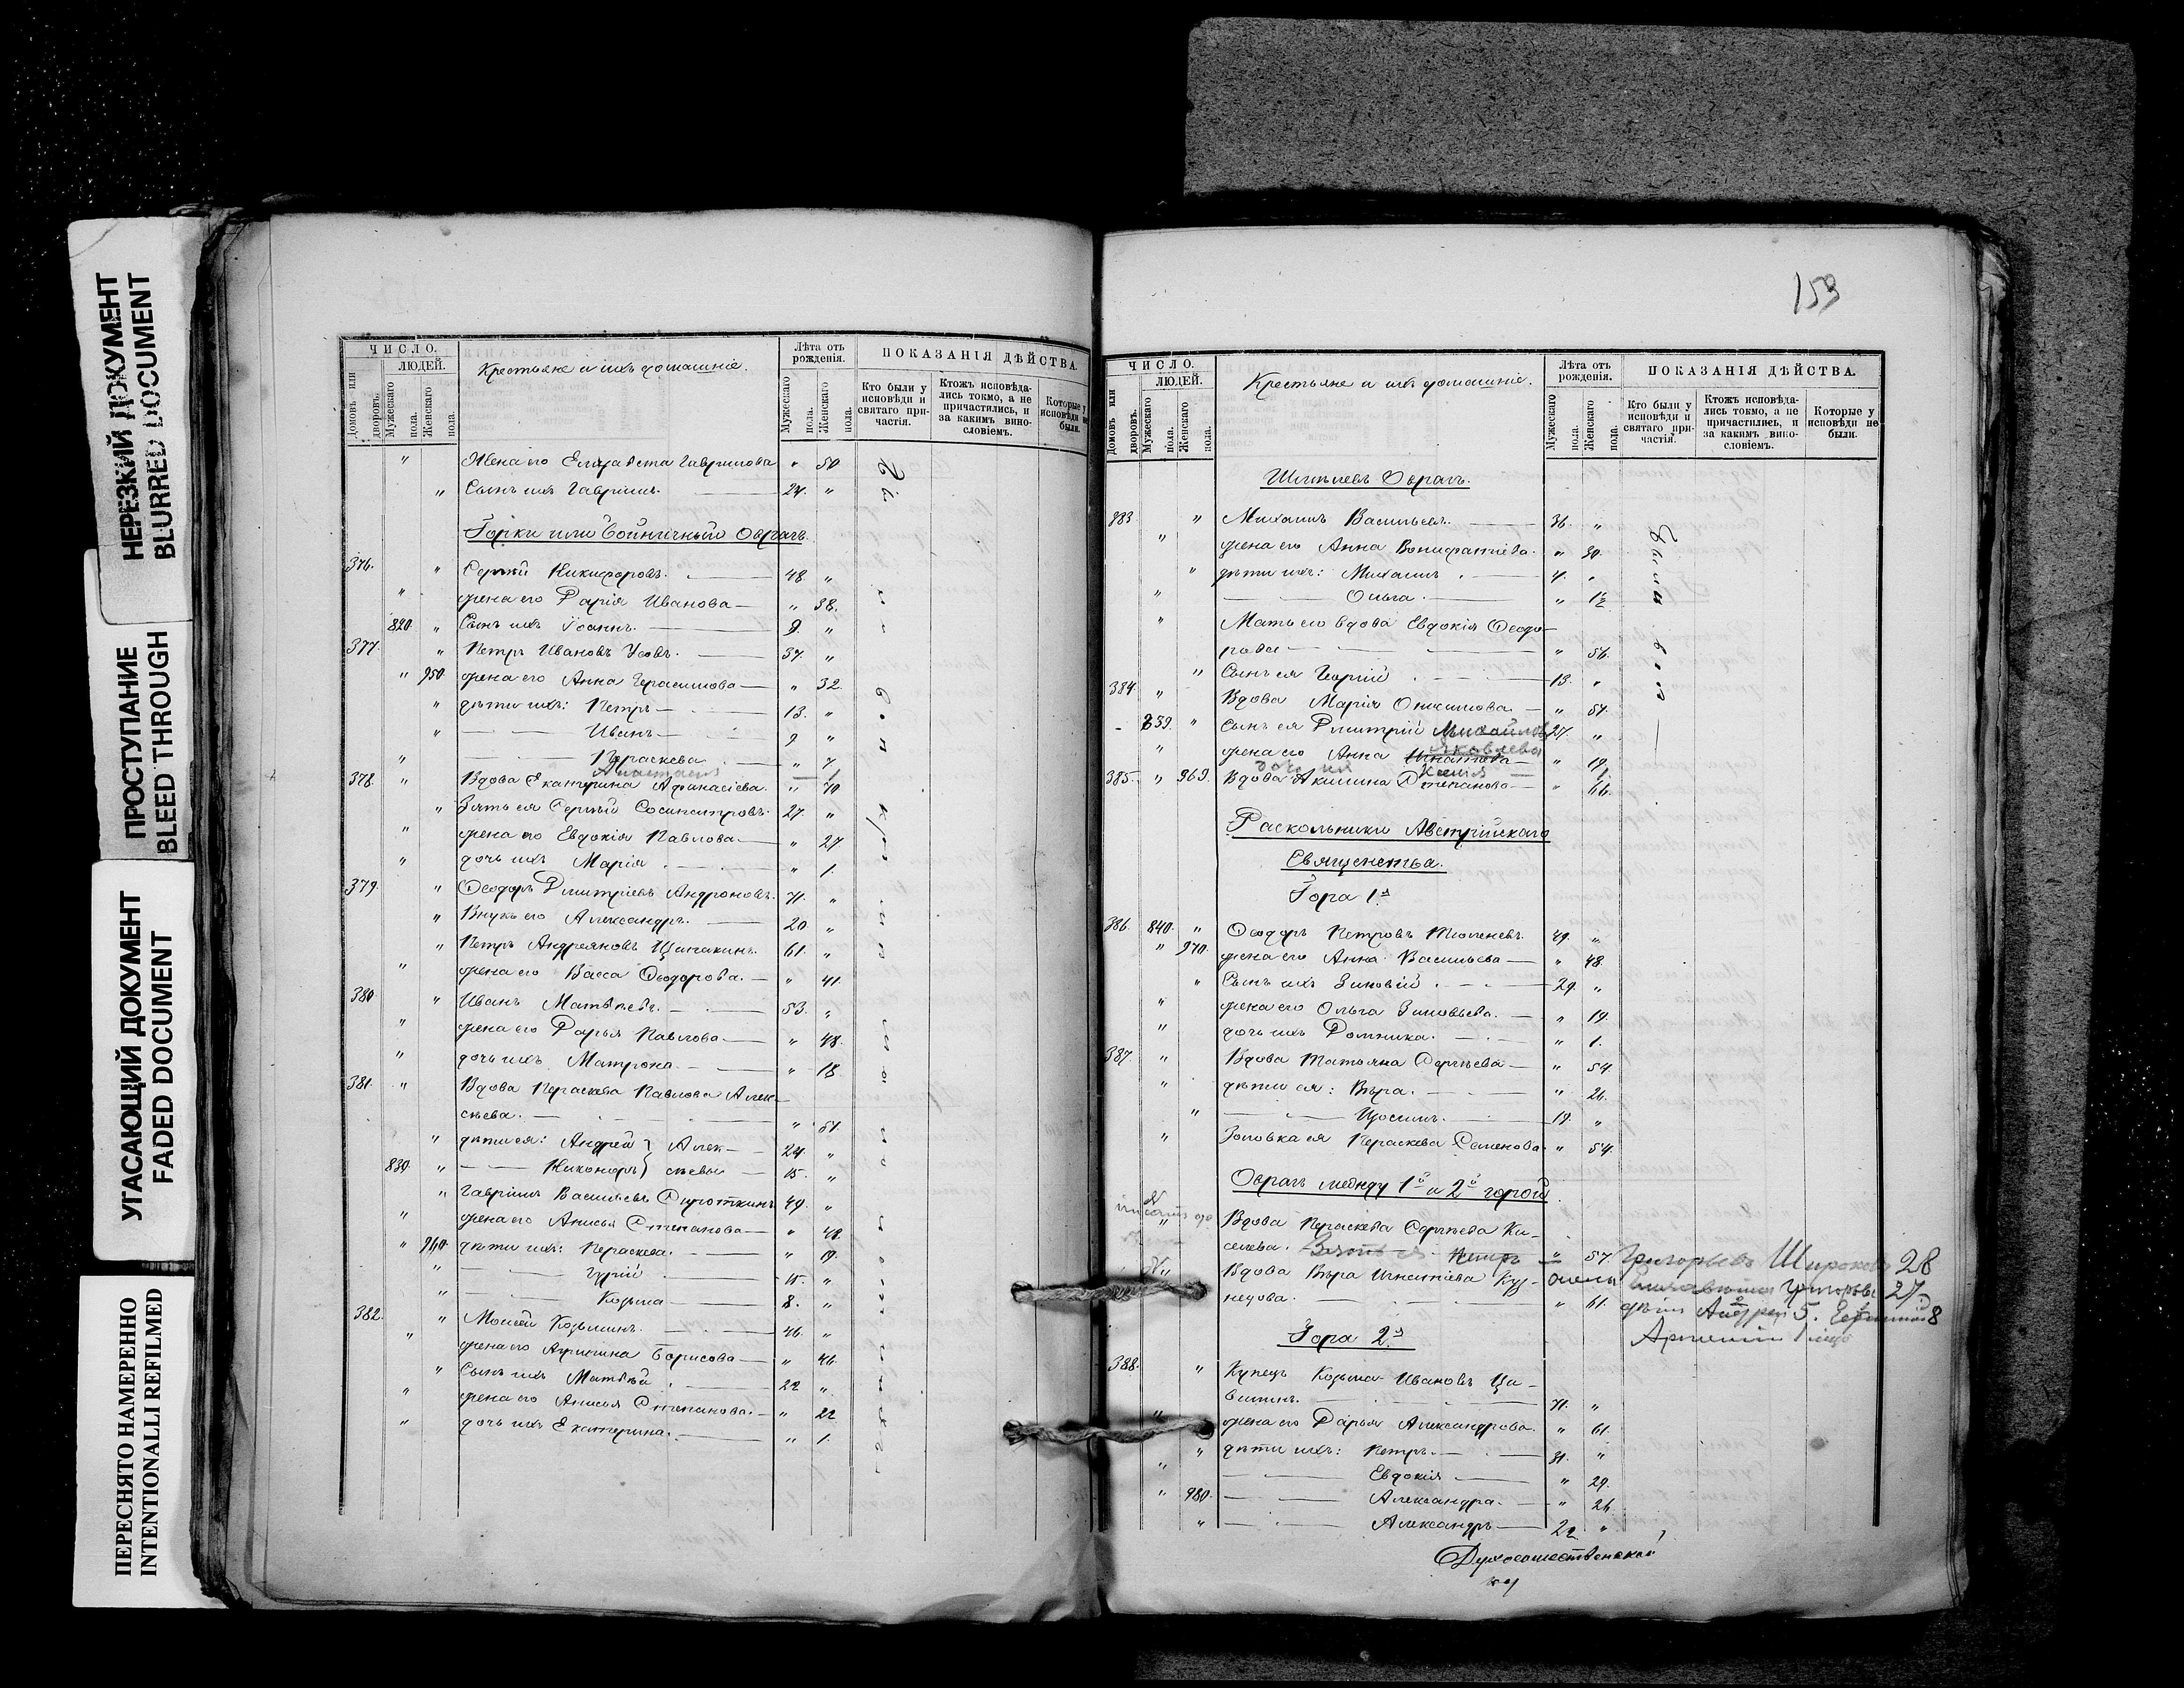 НЕРЕЗКИЙ ДОКУМЕНТ
BLURRED DOCUMENT
ПРОСТУПАНИЕ
BLEED THROUGH
УГАСАЮЩИЙ ДОКУМЕНТ
FADED DOCUMENT
ПЕРЕСНЯТО НАМЕРЕННО
INTENTIONALLI REFILMED
ЧИСЛО.
ЛЮДЕЙ.
Домовъ или дворовъ.
Мужескаго пола.
Женскаго пола.
Крестьяне и ихъ домашніе.
Лѣта отъ рожденія.
Мужескаго пола.
Женскаго пола.
ПОКАЗАНІЯ ДѢЙСТВА.
Кто были у исповѣди и святаго причастія.
Ктожъ исповѣдались токмо, а не причастились, и за какимъ винословіемъ.
Которые у исповѣди не были.
" Жена его Елизавета Гаврилова " 50
" Сынъ ихъ Гавріилъ. 24. "
Горки или Бойничный Оврагъ
376. " Сергѣй Никифоровъ. 48 "
" жена его Дарія Иванова " 38.
820 " Сынъ ихъ Іоаннъ. 9. "
377. " Петръ Ивановъ Усовъ. 37. "
" 950 жена его Анна Герасимова " 32.
" дѣти ихъ: Петръ 13. "
" Иванъ 9 "
" Параскева " 7
Анастасія 1
378. " Вдова Екатерина Афанасіева. " 70
" Зять ея Сергѣй Сосипатровъ. 27. "
" жена его Евдокія Павлова " 27
" дочь ихъ Марія " 1.
379. " Ѳеодоръ Дмитріевъ Андроновъ. 71. "
" Внукъ его Александръ. 20 "
" Петръ Андреяновъ Щипакинъ. 61. "
" жена его Васса Ѳеодорова. " 41.
380 " Иванъ Матвѣевъ. 53. "
" жена его Дарья Павлова " 48.
" дочь ихъ Матрона. " 18
381. " Вдова Параскева Павлова Алек-
сѣева. " 51.
" дѣти ея: Андрей } Алек- 24. "
830. " Никоноръ } сѣевы 15. "
" Гавріилъ Васильевъ Сироткинъ 49. "
" жена его Анисья Степанова " 42
" 960 дѣти ихъ: Параскева. " 19.
" Гурій 15. "
" Козьма 8. "
382. " Моисей Козьминъ. 46. "
" жена его Агрипина Борисова " 46
" Сынъ ихъ Матвѣй 22 "
" жена его Анисья Степанова. " 22
" дочь ихъ Екатерина. " 1.
153
ЧИСЛО.
ЛЮДЕЙ.
Домовъ или дворовъ.
Мужескаго пола.
Женскаго пола.
Крестьяне и ихъ домашніе.
Лѣта отъ рожденія.
Мужескаго пола.
Женскаго пола.
ПОКАЗАНІЯ ДѢЙСТВА.
Кто были у исповѣди и святаго причастія.
Ктожъ исповѣдались токмо, а не причастились, и за какимъ винословіемъ.
Которые у исповѣди не были.
Оврагъ.
383 " Михаилъ Васильевъ. 36. "
" жена его Анна Вонифантіева. " 30.
" дѣти ихъ: Михаилъ 4. "
" Ольга. " 1½
" Мать его вдова Евдокія Ѳеодо-
рова " 56.
" Сынъ ея Георгій 13. "
384. " Вдова Марія Онисимова. " 51.
839. " сынъ ея Дмитрій Михайловъ 27. "
Яковлева
" жена его Анна Игнатіева " 19.
дочь ихъ Ксенія 1.
385. " 969. Вдова Акилина Степанова " 66.
Раскольники Австрійскаго
Священства.
Гора 1я
386. 840. " Ѳеодоръ Петровъ Тюленевъ 49. "
" 970. жена его Анна Васильева " 48.
" Сынъ ихъ Зиновій 29. "
" жена его Ольга Зиновьева. " 19.
" дочь ихъ Домника. " 1.
387. " Вдова Татьяна Сергѣева " 54
" дѣти ея: Вѣра. " 26.
" 19. "
" Золовка ея Параскева Семенова " 54.
Оврагъ между 1й и 2й горой.
" Вдова Параскева Сергѣева Ки-
селева. Зять ея Петръ " 57. Григорьевъ Широковъ 28
Вдова Вѣра Игнатіева Куз- жена Елизавета Григорьева 27
нецова. " 61. дѣти Андрей 5. 8
Гора 2я
388. " Купецъ Козьма Ивановъ Ци-
вилинъ. 71. "
" жена его Дарья Александрова. " 61.
" дѣти ихъ: Петръ. 31. "
" Евдокія " 29.
" 980. Александра. " 26
" Александръ 22 "
Духосошественской